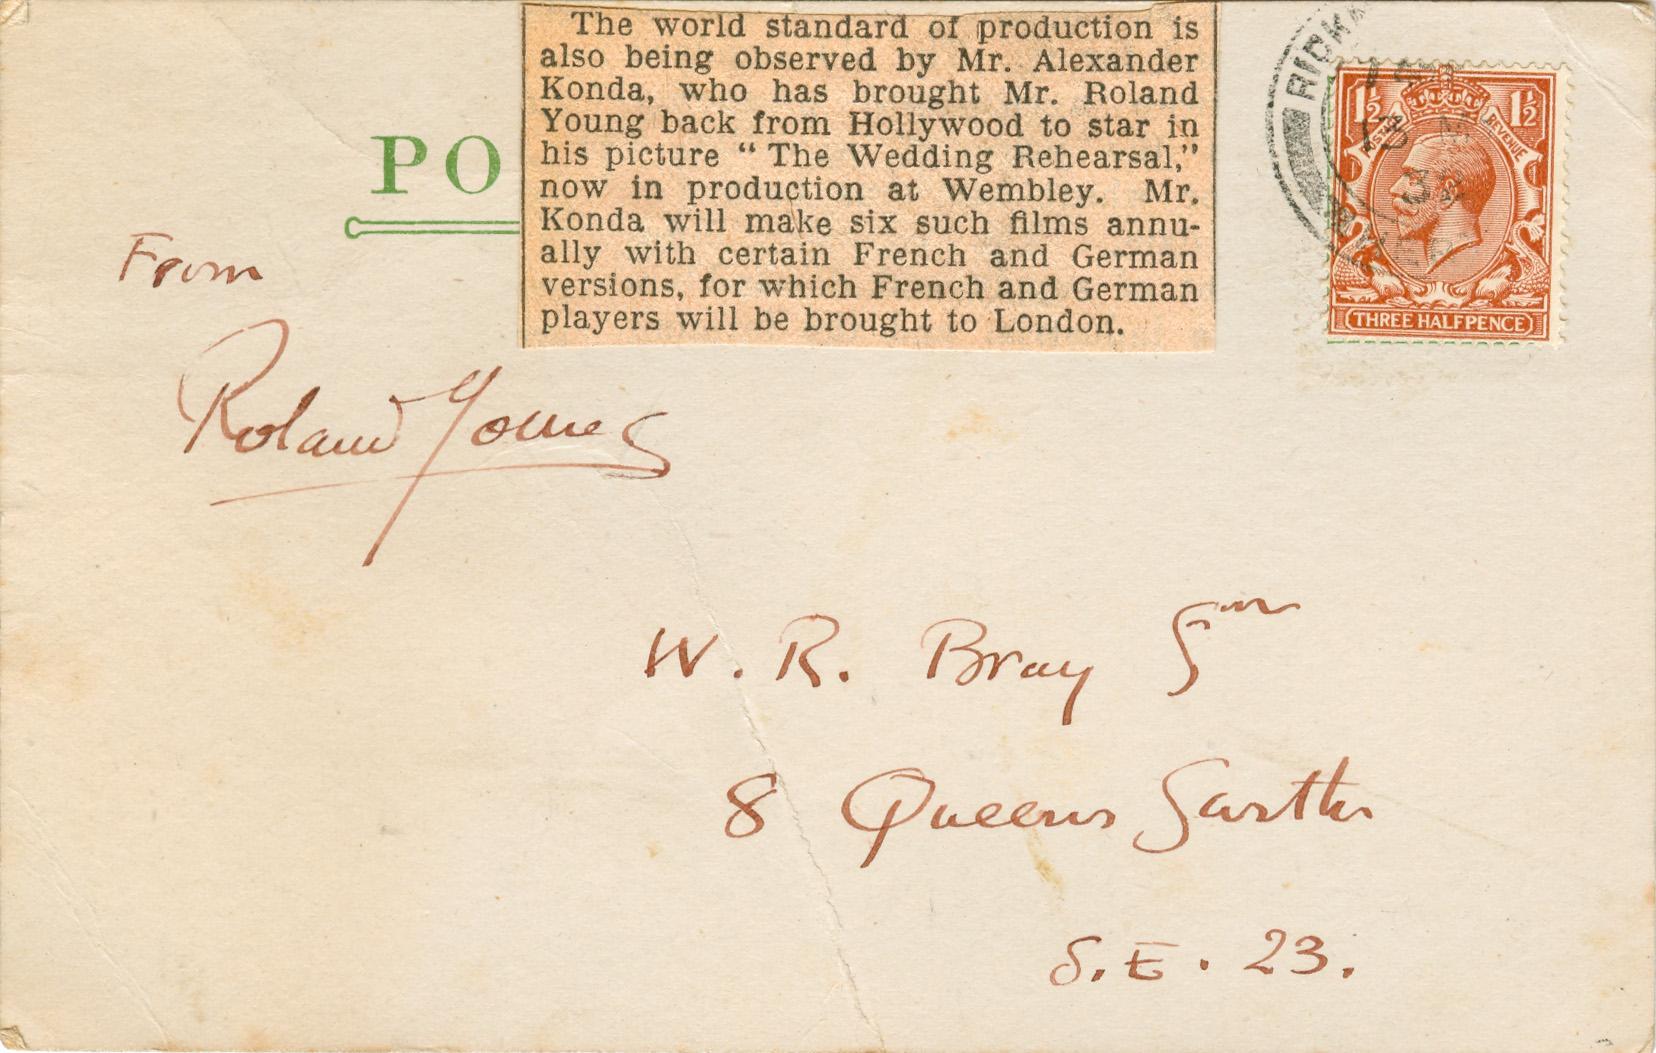 The world standard of production is
also being observed by Mr. Alexander
Konda, who has brought Mr. Roland
Young back from Hollywood to star in
his picture “ The Wedding Rehearsal,”
now in production at Wembley. Mr.
Konda will make six such films annu-
ally with certain French and German
versions, for which French and German
players will be brought to London.
PO
From
Roland Young
W. R. Bray
8 Queens
S.E. 23.
1½ 1½
POSTAGE REVENUE
THREE HALFPENCE
RICK
13